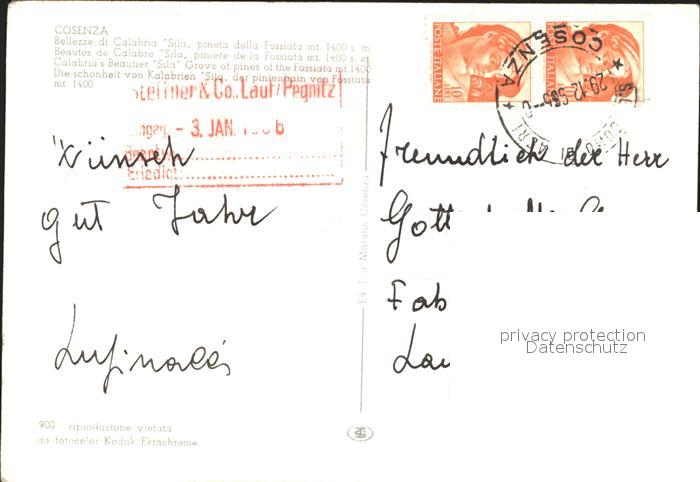 COSENZA
Bellezze di Calabria "Sila, pineta della Fossiata mt. 1400 s. m.
Beautes de Calabre "Sila, piniere de la Fossiata mt. 1400 s. m.
Calabria's Beauties "Sila" Grove of pines of the Fossiata mt 1400
Die schonheit von Kalabrien "Sila, der pinienhain von Fossiata
mt. 1400
& Co., Lauf/Pegnitz
- 3. JAN.
Erledigt:
Wünsch
gut Jahr
POSTE ITALIANE
COSENZA
29.12.65
freundlich der Herr
Gott
Fab
Lau
privacy protection
Datenschutz
900 riproduzione vietata
da fotocolor Kodak Ektachrome